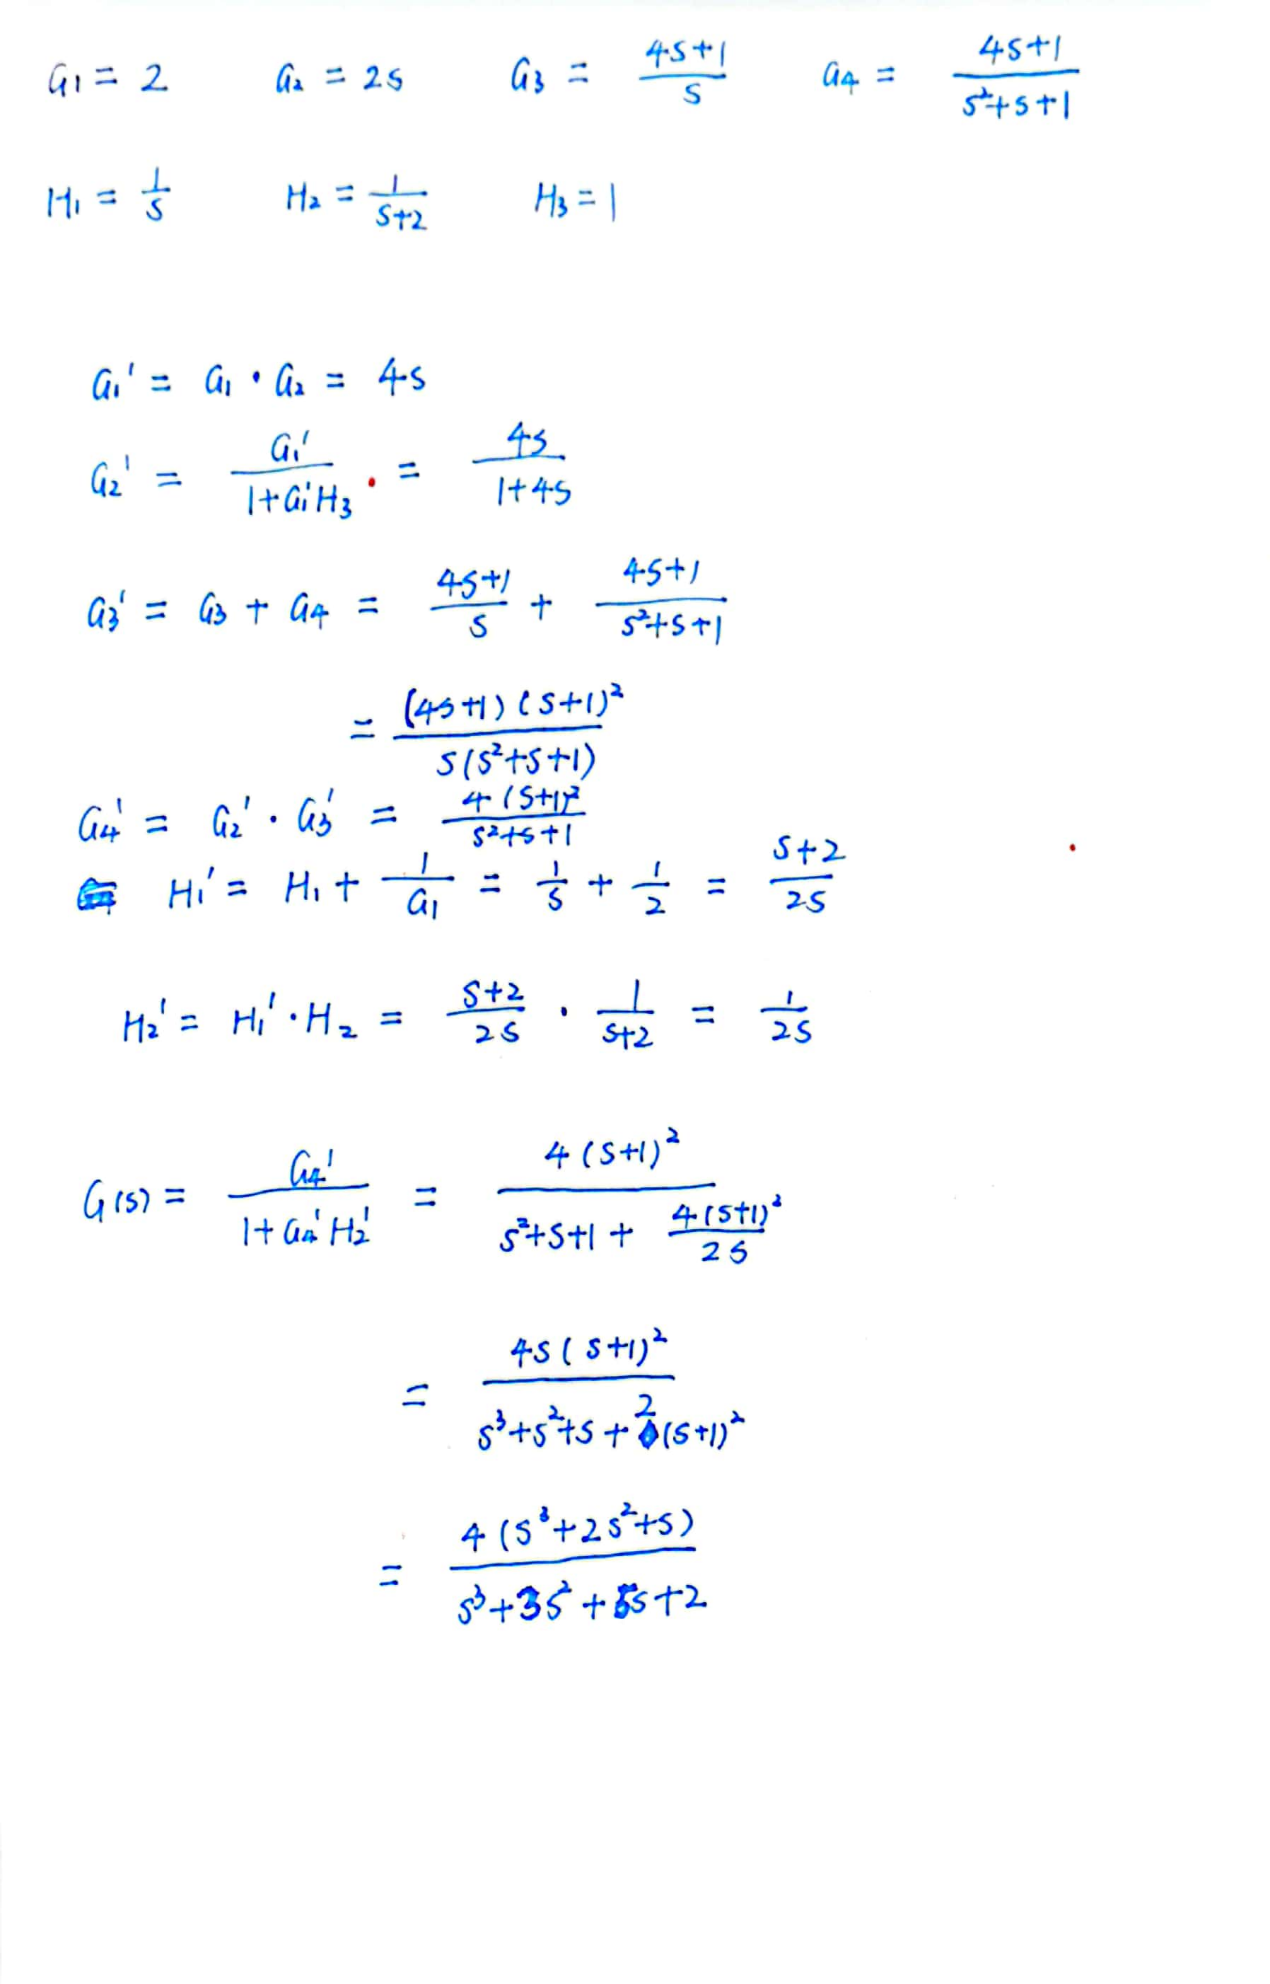 G1 = 2 G2 = 2s G3 = (4s+1)/s G4 = (4s+1)/(s²+s+1)
H1 = 1/s H2 = 1/(s+2) H3 = 1
G1' = G1 · G2 = 4s
G2' = G1'/(1+G1'H3) · = 4s/(1+4s)
G3' = G3 + G4 = (4s+1)/s + (4s+1)/(s²+s+1)
= (4s+1)(s+1)²/s(s²+s+1)
G4' = G2' · G3' = 4(s+1)²/(s²+s+1)
H1' = H1 + 1/G1 = 1/s + 1/2 = (s+2)/2s
H2' = H1' · H2 = (s+2)/2s · 1/(s+2) = 1/2s
G(s) = G4'/(1+G4'H2') = 4(s+1)²/(s²+s+1 + 4(s+1)²/2s)
= 4s(s+1)²/(s³+s²+s+2(s+1)²)
= 4(s³+2s²+s)/(s³+3s²+5s+2)